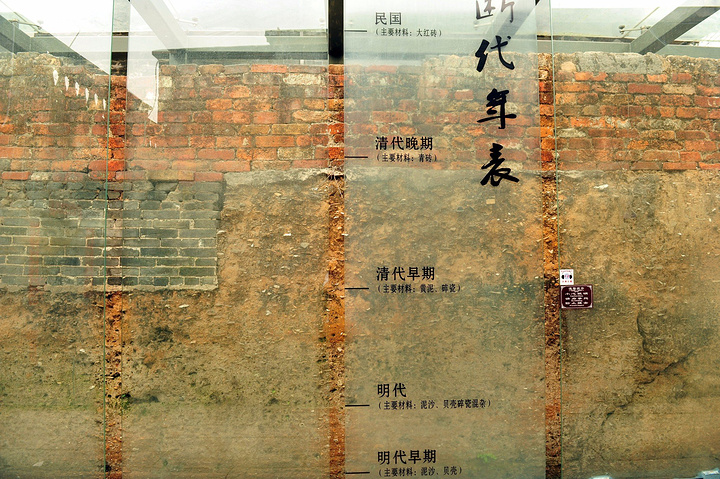 断代年表
民国
（主要材料：大红砖）
清代晚期
（主要材料：青砖）
清代早期
（主要材料：黄泥、碎瓷）
明代
（主要材料：泥沙、贝壳碎瓷混杂）
明代早期
（主要材料：泥沙、贝壳）